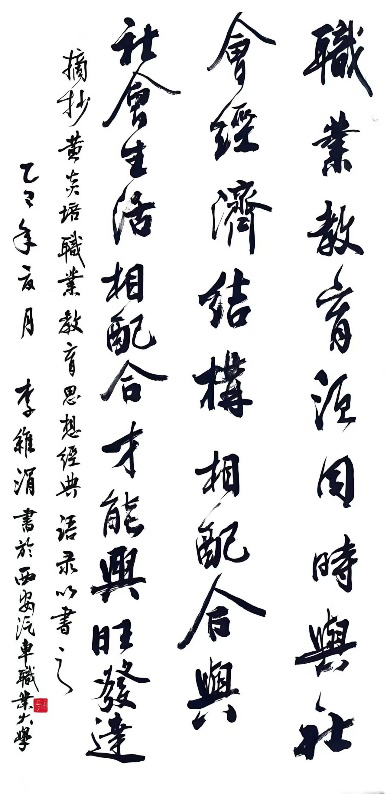 職業教育須同時與社
會經濟結構相配合與
社會生活相配合才能興旺發達
摘抄黄炎培職業教育思想經典语录以書之
乙巳年夏月 李雅涓書於西安汽車職業大學